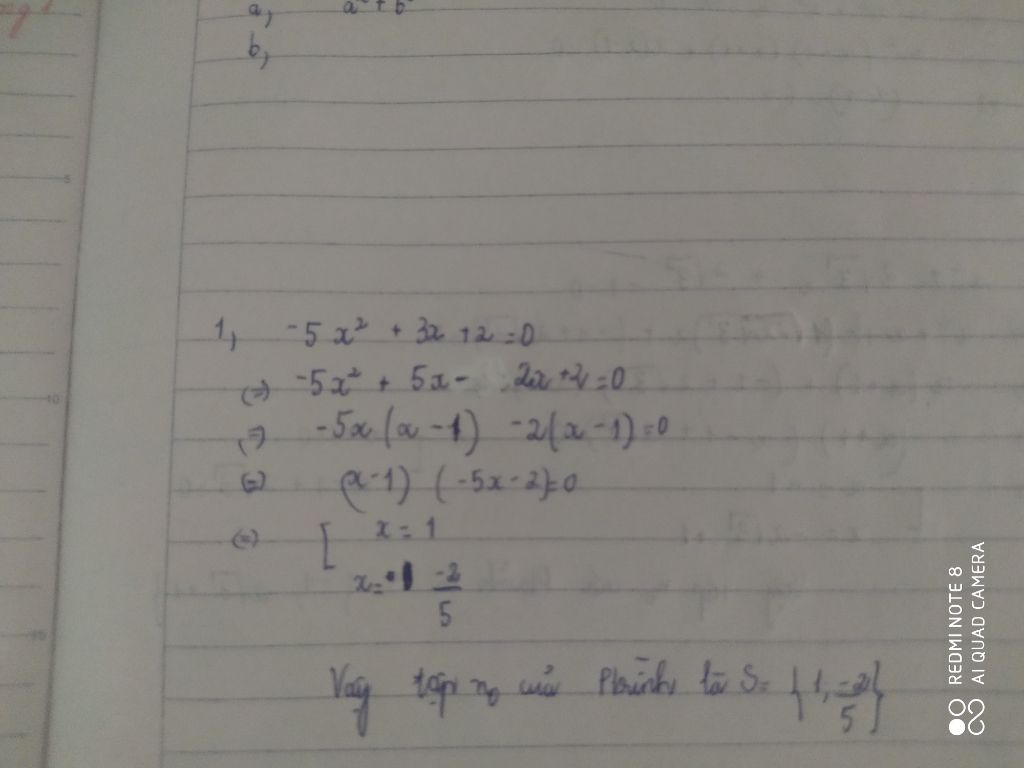 a, a² + b
b,
1, -5x² + 3x + 2 = 0
(=) -5x² + 5x - 2x + 2 = 0
(=) -5x(x - 1) -2(x - 1) = 0
(=) (x - 1) (-5x - 2) = 0
(=) [ x = 1
x = -2/5
Vậy tập no của Ptrình là S = {1, -2/5}
REDMI NOTE 8
AI QUAD CAMERA